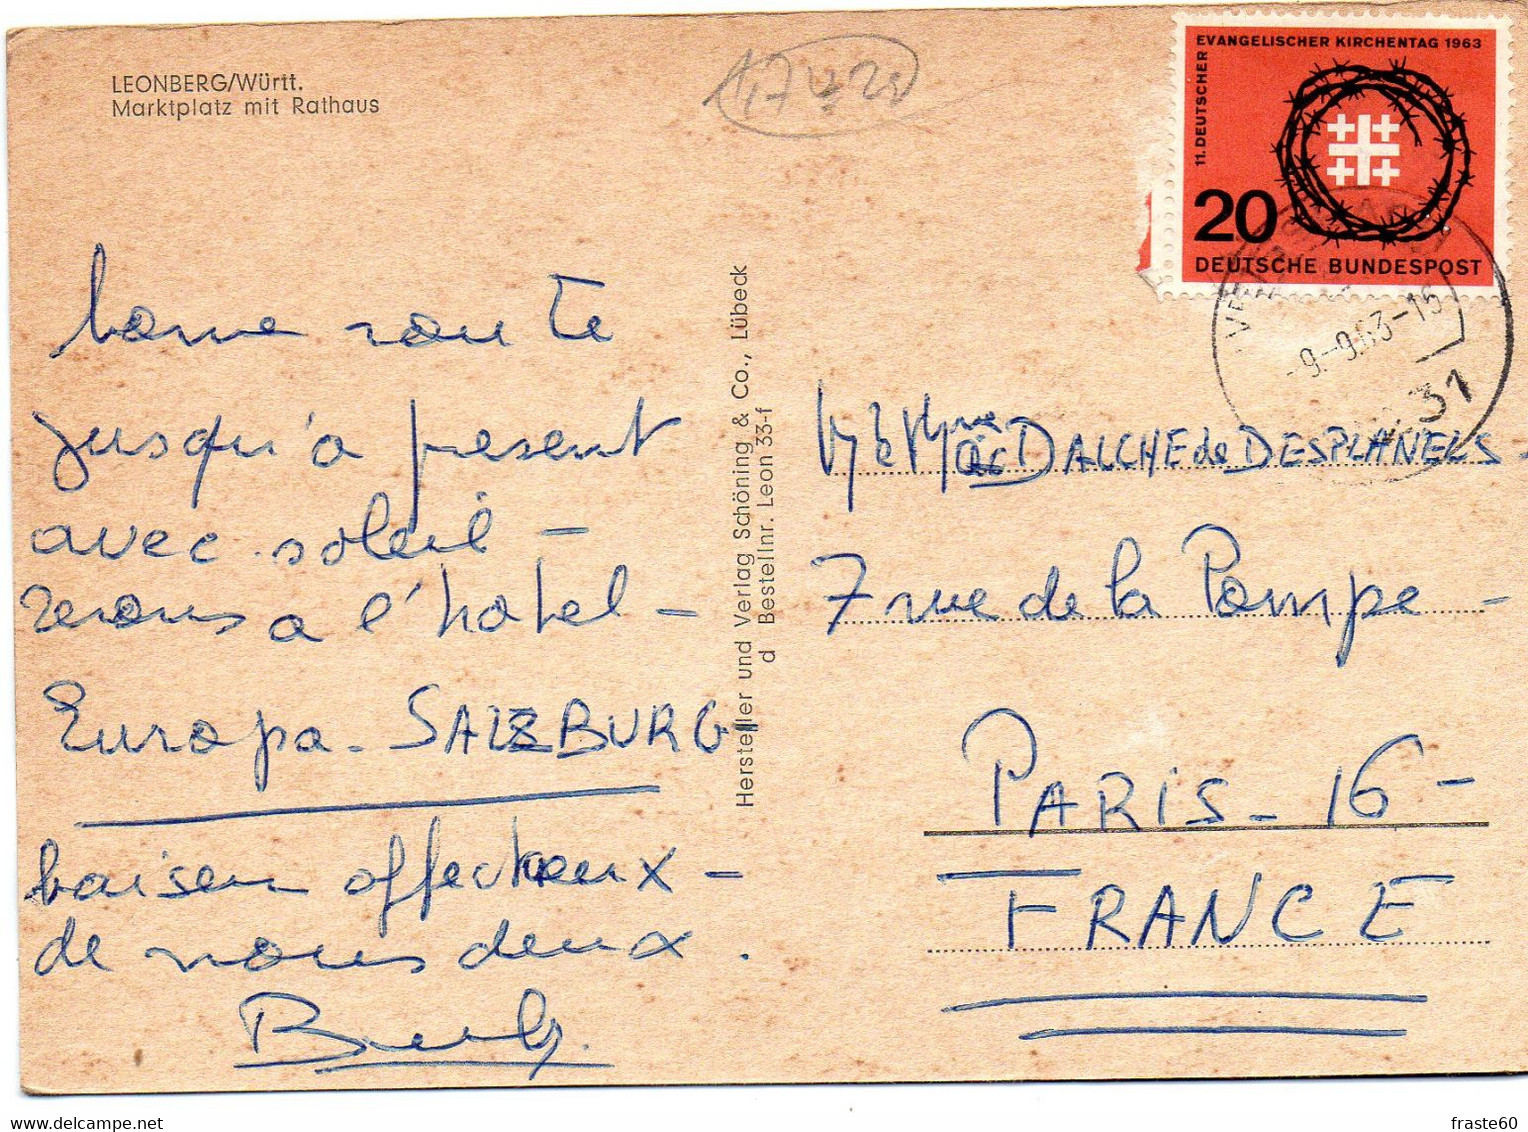 LEONBERG/Württ.
Marktplatz mit Rathaus
bonne route
jusqu'à present
avec soleil -
serons a l'hotel -
Europa - SALZBURG
baisers affectueux -
de nous deux.
Hersteller und Verlag Schöning & Co., Lübeck
d Bestellnr. Leon 33-f
11. DEUTSCHER
EVANGELISCHER KIRCHENTAG 1963
20
DEUTSCHE BUNDESPOST
-9.-9.63-15
31
DALCHE de DESPLANELS -
7 rue de la Pompe -
PARIS - 16 -
FRANCE
fraste60